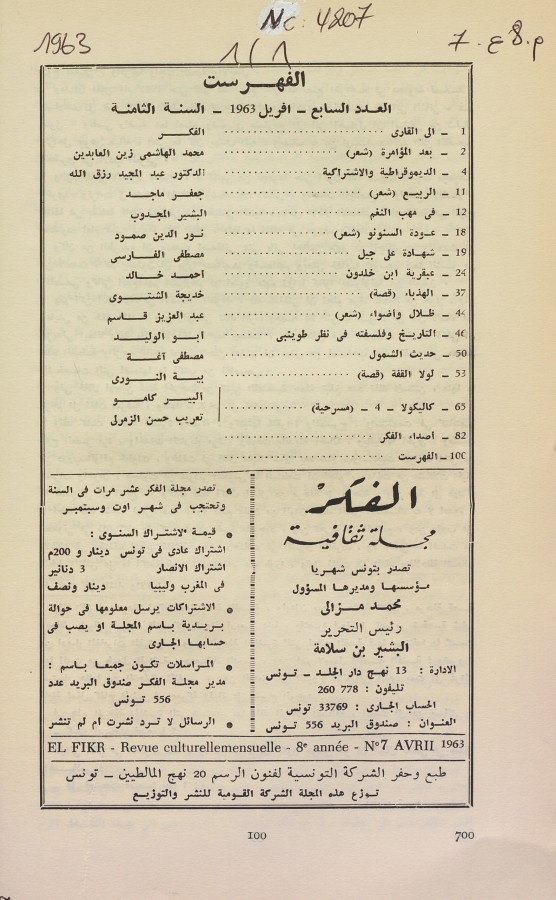 Nc: 4207
1963
1/1
م.8 ع.7
الفهرست
العدد السابع - افريل 1963 - السنة الثامنة
1 - الى القارى ........ الفكر
2 - بعد المؤامرة (شعر) ........ محمد الهاشمى زين العابدين
4 - الديموقراطية والاشتراكية ........ الدكتور عبد المجيد رزق الله
11 - الربيع (شعر) ........ جعفر ماجد
12 - فى مهب النغم ........ البشير المجدوب
18 - عودة السنونو (شعر) ........ نور الدين صمود
19 - شهادة على جيل ........ مصطفى الفارسى
24 - عبقرية ابن خلدون ........ احمد خالد
37 - الهذباء (قصة) ........ خديجة الشتوى
44 - ظلال وأضواء (شعر) ........ عبد العزيز قاسم
46 - التاريخ وفلسفته فى نظر طوينبى ........ أبو الوليد
50 - حديث الشمول ........ مصطفى آغة
53 - لولا القفة (قصة) ........ بية النورى
65 - كاليكولا - 4 - (مسرحية) ........ البير كامو
تعريب حسن الزمرلى
82 - أصداء الفكر ........
100 - الفهرست ........
الفكر
مجلة ثقافية
تصدر بتونس شهريا
مؤسسها ومديرها المسؤول
محمد مزالى
رئيس التحرير
البشير بن سلامة
الادارة : 13 نهج دار الجلد - تونس
تليفون : 778 260
الحساب الجارى : 33769 تونس
العنوان : صندوق البريد 556 تونس
• تصدر مجلة الفكر عشر مرات فى السنة
وتحتجب فى شهر اوت وسبتمبر
• قيمة الاشتراك السنوى :
اشتراك عادى فى تونس دينار و 200م
اشتراك الانصار 3 دنانير
فى المغرب وليبيا دينار ونصف
• الاشتراكات يرسل معلومها فى حوالة
بريدية باسم المجلة او يصب فى
حسابها الجارى
• المراسلات تكون جميعا باسم :
مدير مجلة الفكر صندوق البريد عدد
556 تونس
• الرسائل لا ترد نشرت ام لم تنشر
EL FIKR - Revue culturellemensuelle - 8e année - N°7 AVRII 1963
طبع وحفر الشركة التونسية لفنون الرسم 20 نهج المالطيين - تونس
توزع هذه المجلة الشركة القومية للنشر والتوزيع
100
700